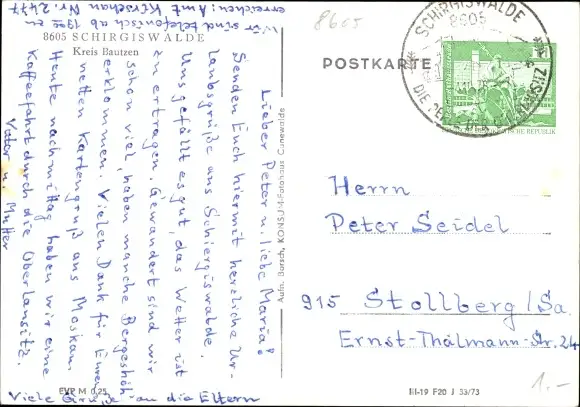 Wir sind telefonisch ab 19 00 zu
erreichen: Amt Kirschau Nr. 2477
8605 SCHIRGISWALDE
Kreis Bautzen
Lieber Peter u. liebe Maria!
Senden Euch hiermit herzliche Ur-
laubsgrüße aus Schiergiswalde.
Uns gefällt es gut, das Wetter ist
zu ertragen. Gewandert sind wir
schon viel, haben manche Bergeshöh
erklommen. Vielen Dank für Euren
netten Kartengruß aus Moskau.
Heute nachmittag haben wir eine
Kaffeefahrt durch die Oberlausitz.
Vater u. Mutter
Viele Grüße an die Eltern
EVP M 0,25
Aufn. Borsch, KONSUM-Fotohaus Cunewalde
8605
POSTKARTE
SCHIRGISWALDE
8605
DIE PERLE DER OBERLAUSITZ
Herrn
Peter Seidel
915 Stollberg/Sa.
Ernst-Thälmann-Str. 24
III-19 F20 J 53/73
1.-